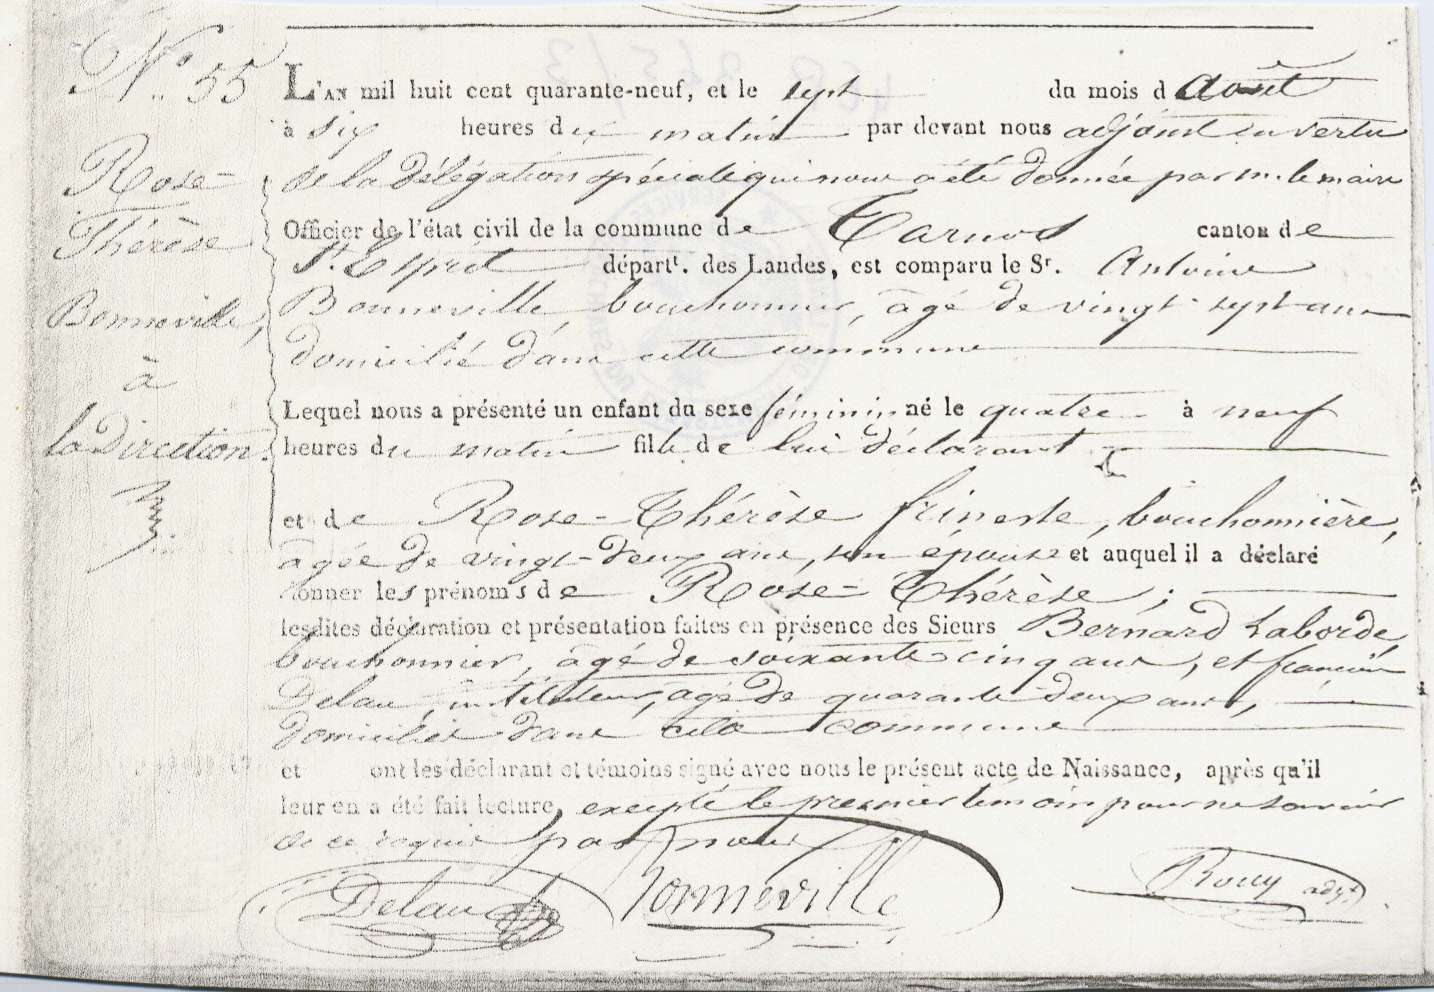 N° 55
Rose-
Thérèse
Bonneville,
à
la Direction.
L'AN mil huit cent quarante-neuf, et le sept du mois d Août
à six heures du matin par devant nous adjoint en vertu
de la délégation spéciale qui nous a été donnée par m. le maire
Officier de l'état civil de la commune de Tarnos canton de
St. Esprit départt. des Landes, est comparu le Sr. Antoine
Bonneville, bouchonnier, âgé de vingt-sept ans
domicilié dans cette commune
Lequel nous a présenté un enfant du sexe féminin né le quatre à neuf
heures du matin fille de lui déclarant
et de Rose-Thérèse frineste, bouchonnière,
âgée de vingt-deux ans, son épouse et auquel il a déclaré
donner les prénoms de Rose-Thérèse;
lesdites déclaration et présentation faites en présence des Sieurs Bernard Laborde,
bouchonnier, âgé de soixante cinq ans, et françois
Delau, instituteur, âgé de quarante-deux ans,
domiciliés dans cette commune
et ont les déclarant et témoins signé avec nous le présent acte de Naissance, après qu'il
leur en a été fait lecture, excepté le premier témoin pour ne savoir
de ce requis par nous
Delau Bonneville Rouy adjt.